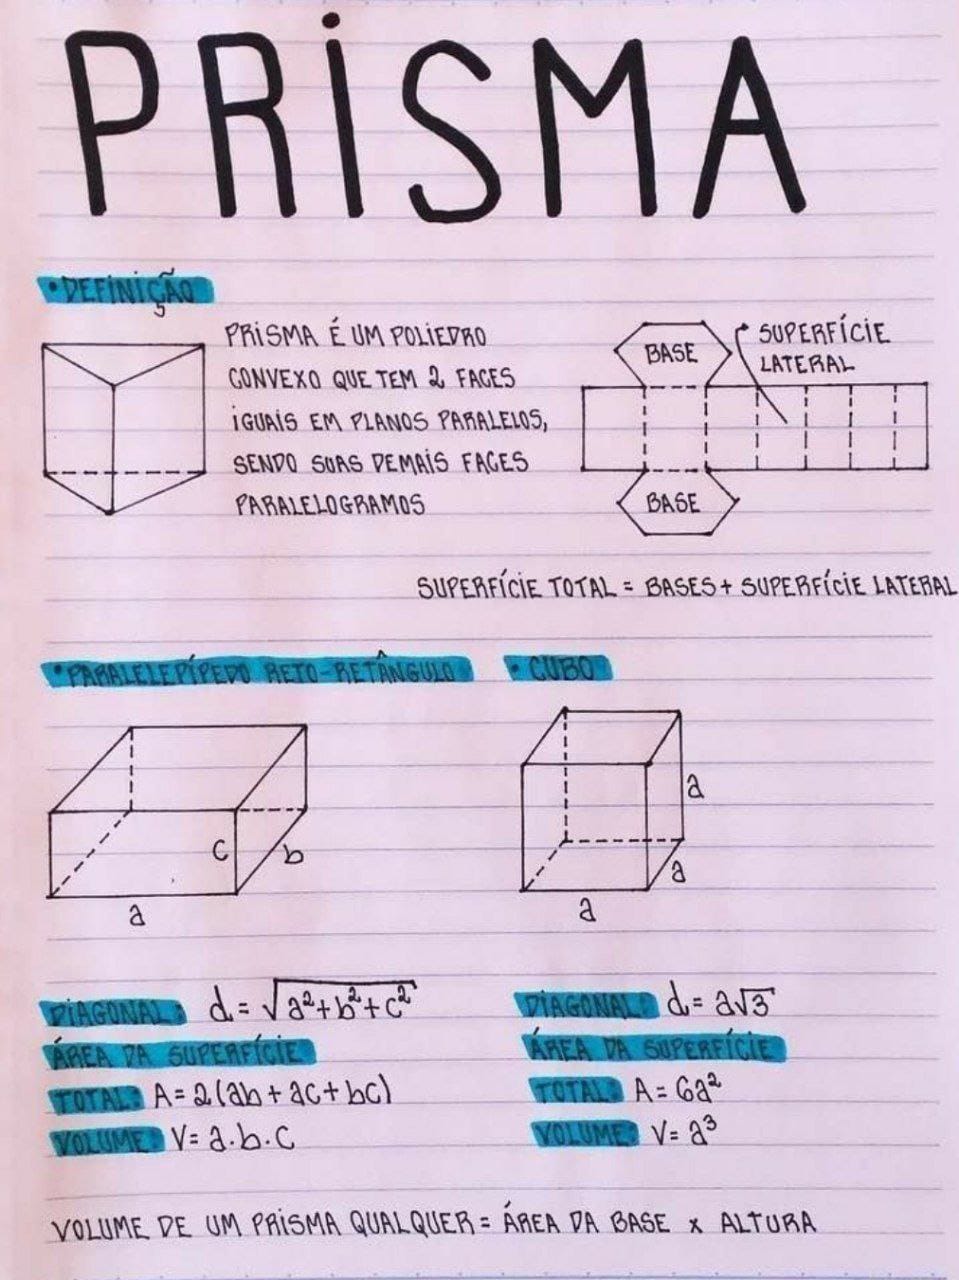 PRISMA
• DEFINIÇÃO
PRISMA É UM POLIEDRO
CONVEXO QUE TEM 2 FACES
IGUAIS EM PLANOS PARALELOS,
SENDO SUAS DEMAIS FACES
PARALELOGRAMOS
BASE
SUPERFÍCIE
LATERAL
BASE
SUPERFÍCIE TOTAL = BASES + SUPERFÍCIE LATERAL
• PARALELEPÍPEDO RETO-RETÂNGULO
c
b
a
• CUBO
a
a
a
DIAGONAL: d = √a²+b²+c²
ÁREA DA SUPERFÍCIE
TOTAL: A = 2(ab + ac + bc)
VOLUME: V = a·b·c
DIAGONAL: d = a√3
ÁREA DA SUPERFÍCIE
TOTAL: A = 6a²
VOLUME: V = a³
VOLUME DE UM PRISMA QUALQUER = ÁREA DA BASE x ALTURA